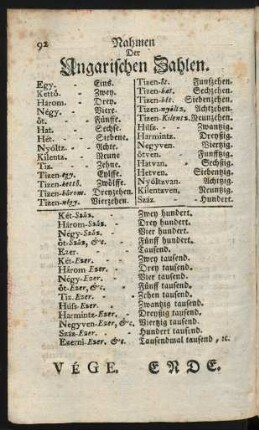 92 Nahmen
Der
Ungarischen Zahlen.
Egy. - - Eins.
Kettő. - Zwey.
Három. - Drey.
Négy. - Viert.
öt. - Fünffe.
Hat. - Sechse.
Hét. - Siebene.
Nyóltz. - Achte.
Kilentz. - Neune
Tiz. - Zehne.
Tizen-egy. - Eylffe.
Tizen-kettő. Zwölffe.
Tizen-három. Dreyzehen.
Tizen-négy. Vierzehen.
Tizen-öt. Funffzehen.
Tizen-hat. Sechzehen.
Tizen-hét. Siebenzehen.
Tizen-nyóltz. Achtzehen.
Tizen-Kilentz. Neunzehen.
Húss. - - Zwantzig.
Harmintz. - Dreyßig.
Negyven. Viertzig.
ötven. Funfftzig.
Hatvan. - Sechßig.
Hetven. Siebentzig
Nyóltzvan. Achtzig.
Kilentzven. Neuntzig.
Száz - - Hundert.
Két-Száz. Zwey hundert.
Három-Száz. Drey hundert.
Négy-Száz. Vier hundert.
öt-Száz, &c. Fünff hundert.
Ezer. Tausend.
Két-Ezer. Zwey tausend.
Három Ezer. Drey tausend.
Négy-Ezer. Vier tausend.
öt-Ezer, &c. Fünff tausend.
Tiz-Ezer. Zehen tausend.
Húss-Ezer. Zwantzig tausend.
Harmintz-Ezer. Dreyßig tausend.
Negyven-Ezer, &c. Viertzig tausend.
Száz-Ezer. Hundert tausend.
Ezerni-Ezer, &c. Tausendmal tausend, ꝛc.
VÉGE. ENDE.